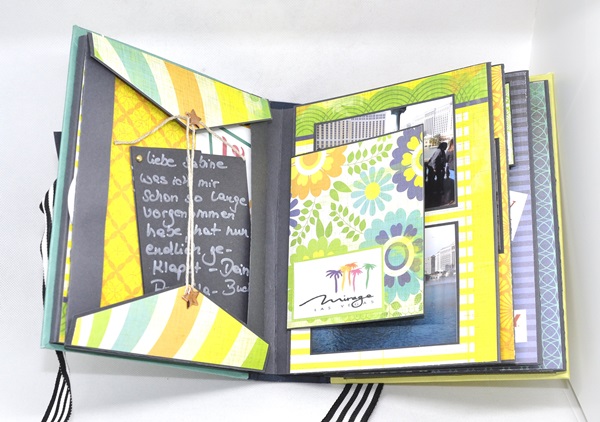 Liebe Sabine
was ich mir
schon so lange
vorgenommen
habe hat nun
endlich ge-
klappt - Dein
mirage